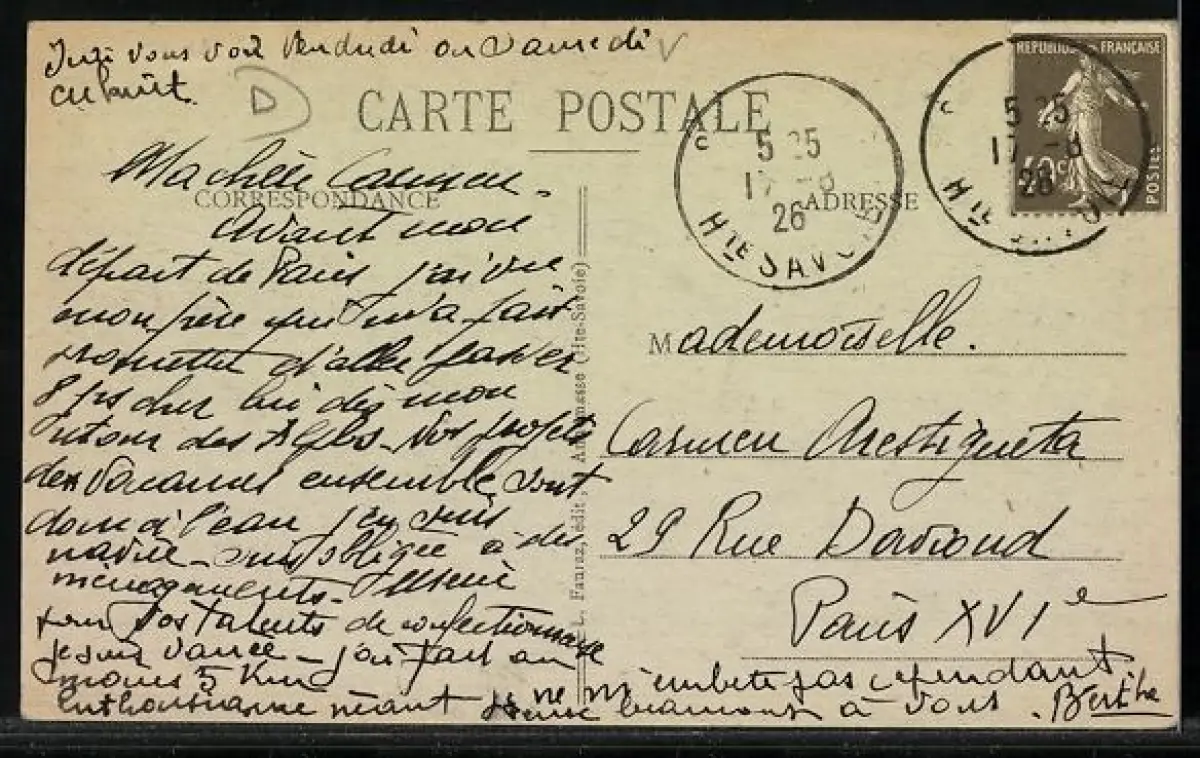 vous voir Vendredi ou Samedi
CARTE POSTALE
RÉPUBLIQUE FRANÇAISE
40c
POSTES
5 25
17 -8
26
HTE SAVOIE
5 25
17 -8
26
HTE
CORRESPONDANCE
ADRESSE
Ma chère Carmen -
Avant mon
départ de Paris j'ai vu
mon père qui m'a fait
promettre d'aller passer
8 jrs chez lui dès mon
retour des Alpes - Nos projets
des vacances ensemble sont
donc à l'eau j'en suis
navrée - suis obligée à des
ménagements -
pour vos talents de confectionneuse
je suis vannée - j'ai fait au
moins 5 Km
enthousiasme néant je ne m'embête pas cependant
pense beaucoup à vous. Berthe
L. Fauraz, édit., Annemasse (Hte-Savoie)
Mademoiselle.
Carmen Arestigueta
29 Rue Davioud
Paris XVIe